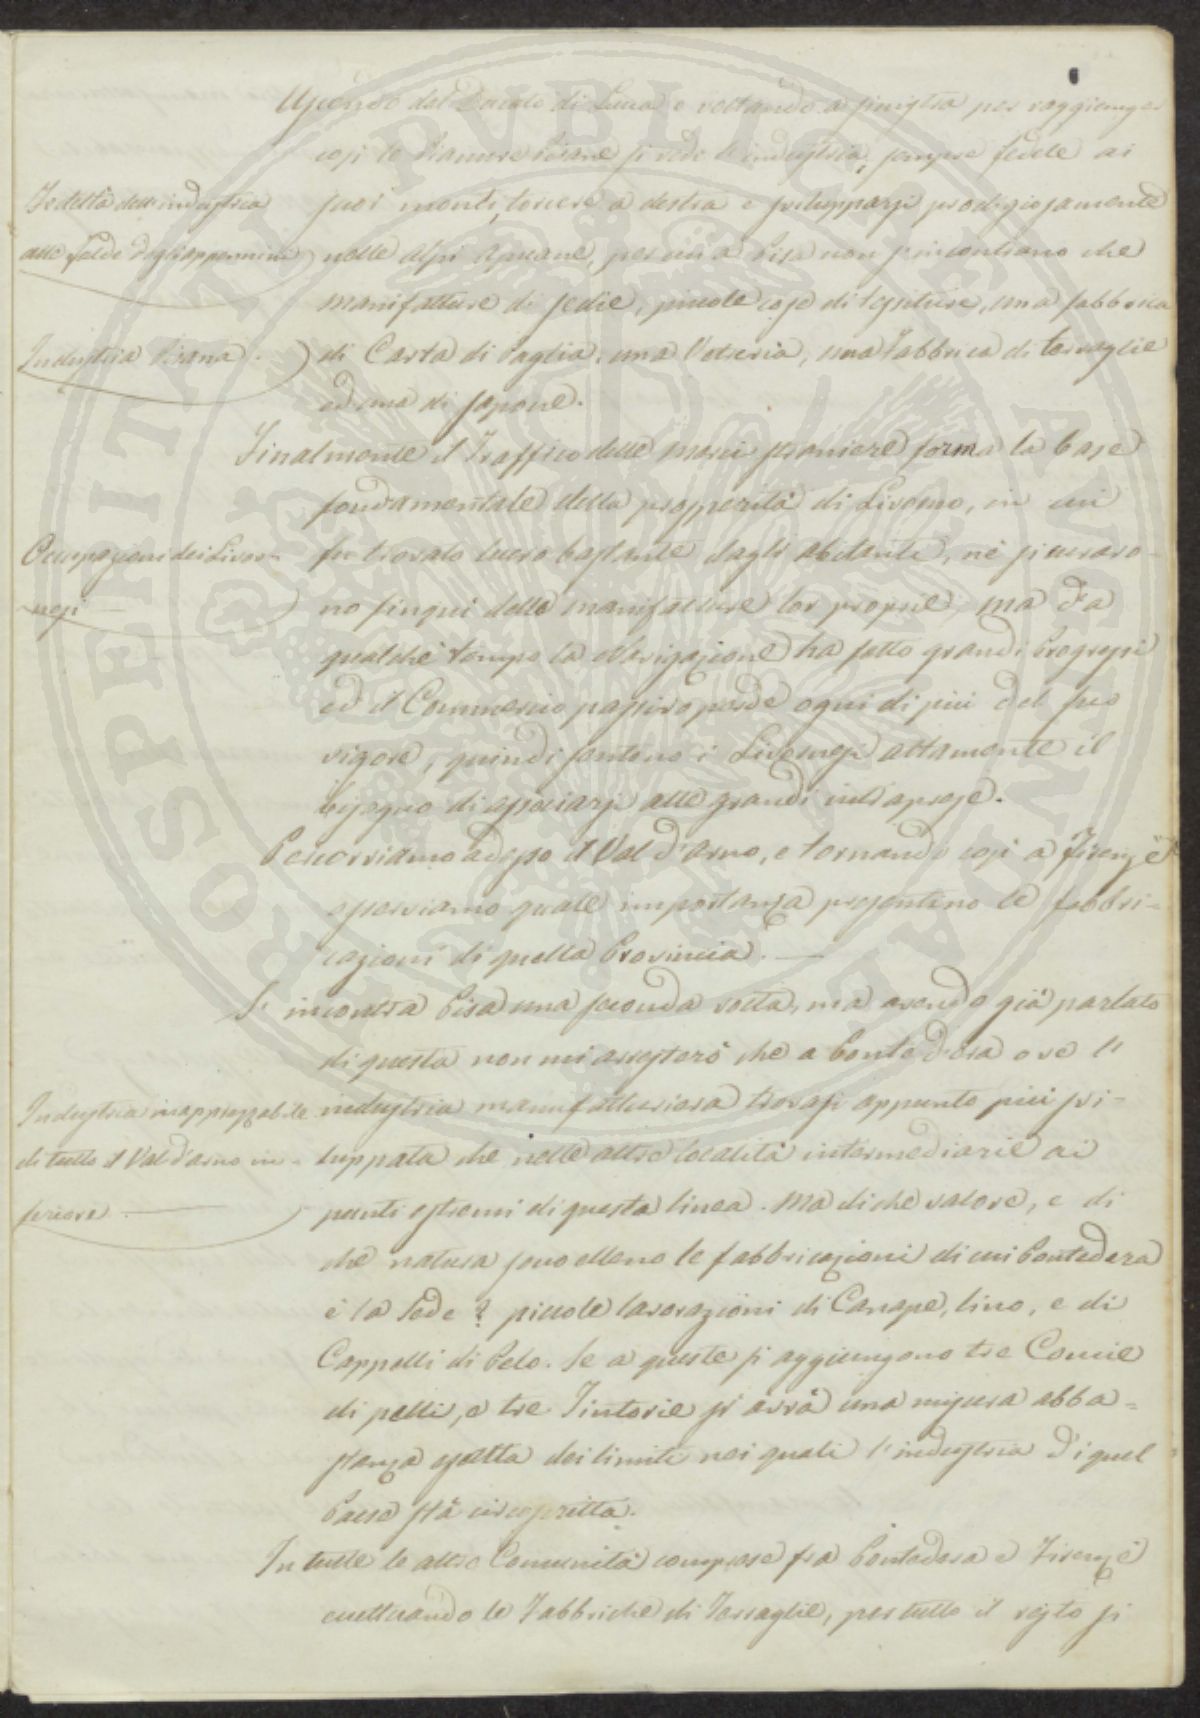 Uscendo dal Ducato di Lucca e voltando a sinistra per raggiunger
così le Pianure Pisane si vede l'industria, sempre fedele ai
Fedeltà dell'industria
alle falde degli appennini
suoi monti, torcere a destra e svilupparsi prodigiosamente
nelle alpi Apuane, per cui a Pisa non s'incontrano che
manifatture di sedie, piccole cose di tessiture, una fabbrica
Industria Pisana.
di Carta di Paglia, una Vetreria, una Fabbrica di terraglie
ed una di sapone.
Finalmente il Traffico delle merci straniere forma la base
fondamentale della prosperità di Livorno, in cui
Occupazioni dei Livor-
nesi
fu trovato lucro bastante dagli abitanti, nè si curaro-
no finqui delle manifatture lor proprie, ma da
qualche tempo la Navigazione ha fatto grandi Progressi
ed il Commercio passivo perde ogni dì più del suo
vigore, quindi sentono i Livornesi altamente il
bisogno di associarsi alle grandi intraprese.
Percorriamo adesso il Val d'Arno, e tornando così a Firenze
osserviamo quale importanza presentino le fabbri-
cazioni di quella Provincia. —
S'incontra Pisa una seconda volta, ma avendo già parlato
di questa non mi arresterò che a Pontedera ove l'
Industria inapprezzabile
di tutto il Val d'arno in-
feriore
industria manifatturiera trovasi appunto più svi-
luppata che nelle altre località intermediarie ai
punti estremi di questa linea. Ma di che valore, e di
che natura sono elleno le fabbricazioni di cui Pontedera
è la Sede? piccole lavorazioni di Canape, lino, e di
Cappelli di Pelo. Se a queste si aggiungono tre Concie
di pelli, e tre Tintorie si avrà una misura abba=
stanza esatta dei limiti nei quali l'industria di quel
Paese stà circoscritta.
In tutte le altre Comunità comprese fra Pontedera e Firenze
eccettuando le Fabbriche di Terraglie, per tutto il resto si
PROSPERITATI PUBLICAE AUGENDAE